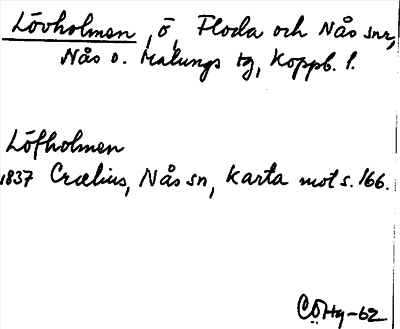 Lövholmen, ö, Floda och Nås snr,
Nås o. Malungs tg, Koppb. l.
Löfholmen
1837 Crælius, Nås sn, Karta mot s. 166.
CÖHg-62